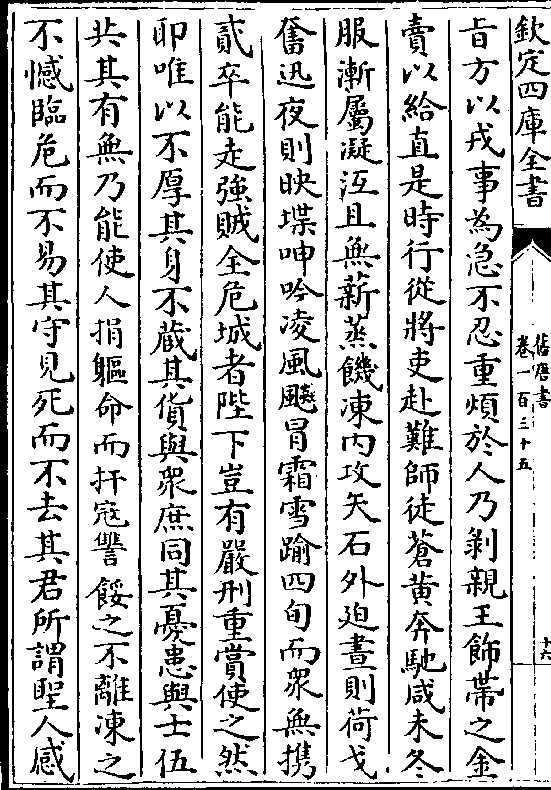 欽定四庫全書
舊唐書
卷一百三十五
十六
旨方以戎事為急不忍重煩於人乃剝親王飾帶之金
賣以給直是時行從將吏赴難師徒蒼黄奔馳咸未冬
服漸屬凝沍且無薪蒸饑凍内攻矢石外迫晝則荷戈
奮迅夜則映堞呻吟凌風飈冒霜雪踰四旬而衆無携
貳卒能走強賊全危城者陛下豈有嚴刑重賞使之然
耶唯以不厚其身不蔵其貨與衆庶同其憂患與士伍
共其有無乃能使人捐軀命而扞寇讐餒之不離凍之
不憾臨危而不易其守見死而不去其君所謂聖人感